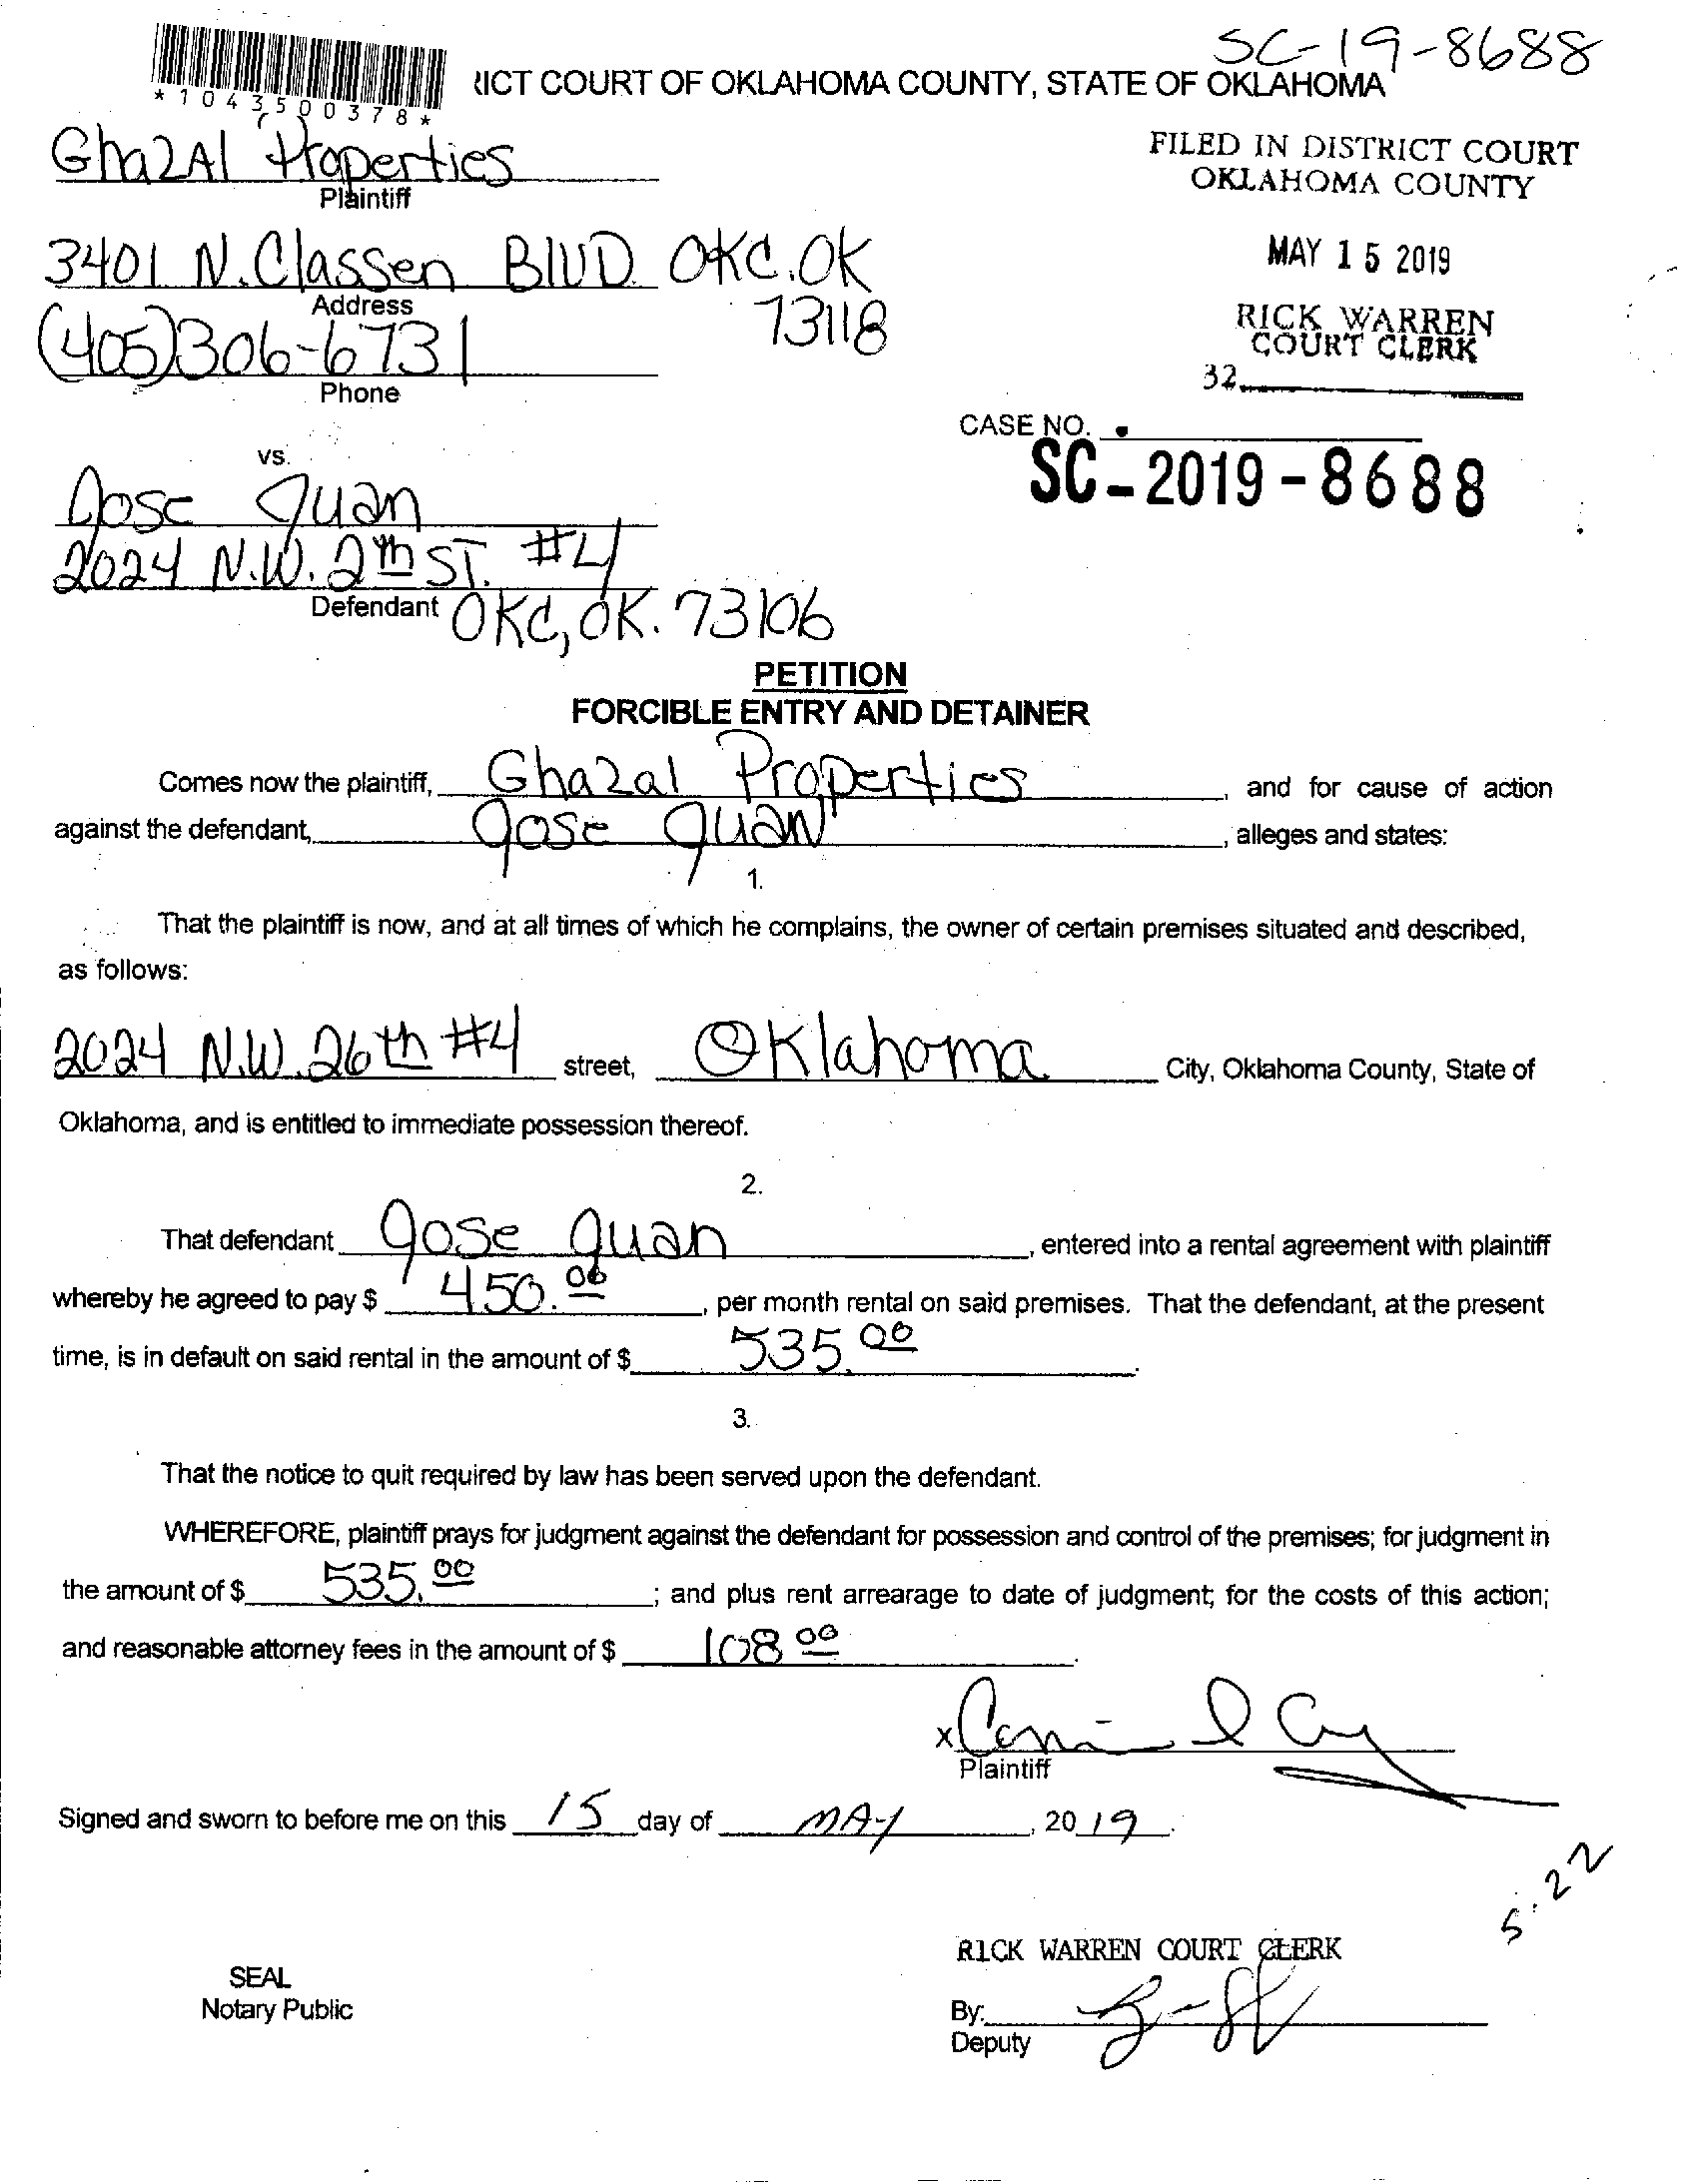 SC-19-8688
ICT COURT OF OKLAHOMA COUNTY, STATE OF OKLAHOMA
*1043500378*
GhazAl Properties
Plaintiff
FILED IN DISTRICT COURT
OKLAHOMA COUNTY
3401 N. Classen BLVD. OKC. OK
Address
73118
MAY 15 2019
(405)306-6731
Phone
RICK WARREN
COURT CLERK
32
CASE NO.
SC-2019-8688
vs.
Jose Juan
2024 N.W. 2th ST. #4
Defendant OKC, OK. 73106
PETITION
FORCIBLE ENTRY AND DETAINER
Comes now the plaintiff, Ghazal Properties, and for cause of action
against the defendant, Jose Juan, alleges and states:
1.
That the plaintiff is now, and at all times of which he complains, the owner of certain premises situated and described,
as follows:
2024 N.W. 26th #4 street, Oklahoma City, Oklahoma County, State of
Oklahoma, and is entitled to immediate possession thereof.
2.
That defendant Jose Juan, entered into a rental agreement with plaintiff
whereby he agreed to pay $ 450.00, per month rental on said premises. That the defendant, at the present
time, is in default on said rental in the amount of $ 535.00.
3.
That the notice to quit required by law has been served upon the defendant.
WHEREFORE, plaintiff prays for judgment against the defendant for possession and control of the premises; for judgment in
the amount of $ 535.00; and plus rent arrearage to date of judgment; for the costs of this action;
and reasonable attorney fees in the amount of $ 108 00.
x
Plaintiff
Signed and sworn to before me on this 15 day of MAY, 2019.
5.22
RICK WARREN COURT CLERK
SEAL
Notary Public
By:
Deputy